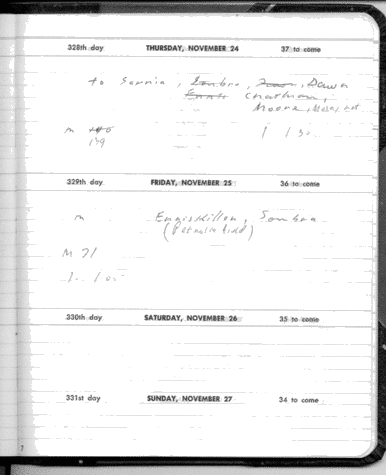 328th day THURSDAY, NOVEMBER 24 37 to come
to Sarnia, Sombra, Dawn
Chatham,
Moore,
m
139
329th day FRIDAY, NOVEMBER 25 36 to come
m Enniskillen, Sombra
(Petrolia field)
M 71
330th day SATURDAY, NOVEMBER 26 35 to come
331st day SUNDAY, NOVEMBER 27 34 to come